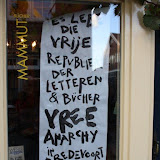 MAMMUT
ES LEE
DIE
VRIJE
REPUBLIEK
DER
LETTEREN
& BÜCHER
VREE
ANARCHY
IN REDEVOORT